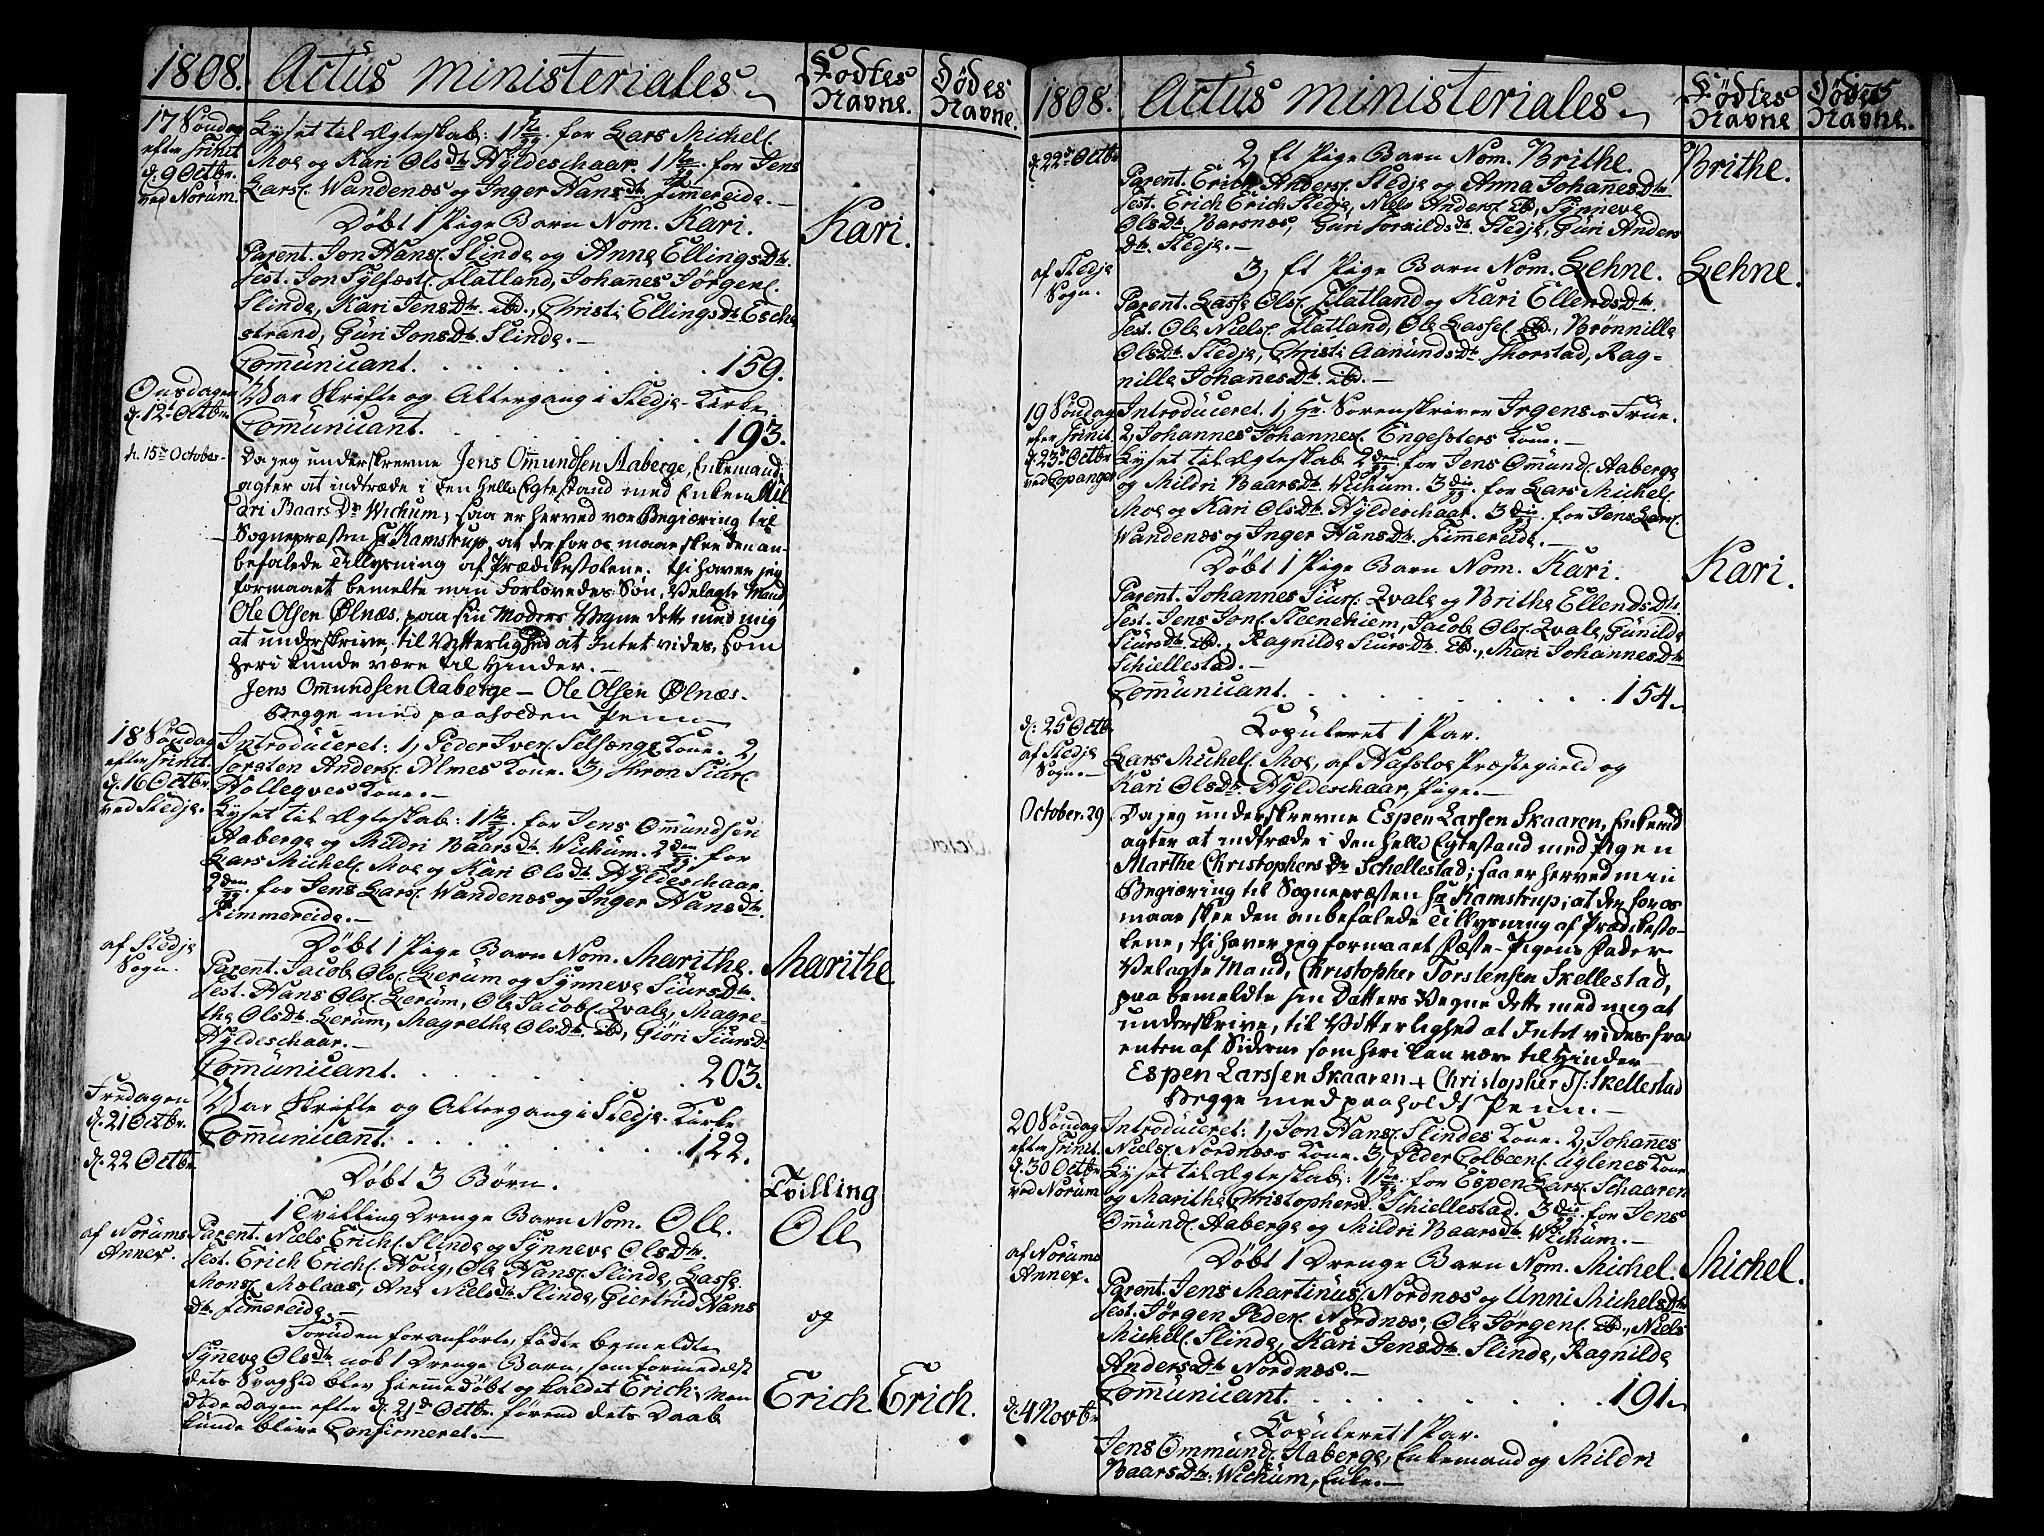 1808. Actus ministeriales. Fødtes Navne. Dødes Navne.
17 Søndag efter Trinit. d. 9 Octbr. ved Norum.
Lyset til Ægteskab: 1ste for Lars Michels.
Moe og Kari Ols Dtr Hyldeschaar. 1ste for Jens
Lars. Wandenæs og Inger Hans Dtr Fimereide.
Døbt 1 Pige Barn Nom. Kari. Kari.
Parent. Jon Hans. Slinde og Anna Ellings Dtr.
Test. Jon Sylfæst. Flatland, Johannes Jørgens.
Slinde, Kari Jens Dtr. ibd., Christi Ellings Dtr Esche
strand, Guri Jons Dtr. Slinde.
Communicant. 159.
Onsdagen d. 12te Octbr.
Var Skrifte og Altergang i Stedje Kirke
Communicant. 193.
d. 15de October
Da jeg underskrevne Jens Ommundsen Aaberge, Enkemand,
agter at indtræde i den hellig Egtestand med Enken Mil
dri Baars Dtr Wichum; saa er herved vor Begiæring til
Sognepræsten Hr Kamstrup, at der for os maae skee den an-
befalede Tillysning af Prædikestolene. Thi haver jeg
formaaet bemelte min Forlovedes Søn, Velagte Mand
Ole Olsen Ølnæs, paa sin Moders Vegne dette med mig
at underskrive, til Vitterlighed at Intet vides, som
heri kunde være til Hinder.
Jens Ommundsen Aaberge — Ole Olsen Ølnæs.
Begge med paaholden Penn
18 Søndag efter Trinit. d. 16 Octbr. ved Stedje.
Introduceret: 1, Peder Ivers. Selsengs Kone. 2,
Torsten Anders. Almes Kone. 3, Thron Siurs.
Nollegves Kone.
Lyset til Ægteskab: 1ste for Jens Ommundsen
Aaberge og Mildri Baars Dtr. Wichum. 2den for
Lars Michels. Moe og Kari Ols Dtr. Hyldeschaar.
2den for Jens Lars. Wandenæs og Inger Hans Dtr.
Fimmereide.
af Stedje Sogn.
Døbt 1 Pige Barn Nom. Marithe. Marithe
Parent. Jacob Ols. Lerum og Synneva Siurs Dtr.
Test. Hans Ols. Lerum, Ole Jacobs. Qvale, Magre-
the Ols Dtr. Lerum, Magrethe Ols Dtr. ibd, Giøri Siurs Dtr
Hyldeschaar.
Communicant. 203.
Fredagen d. 21 Octbr.
Var Skrifte og Altergang i Stedje Kirke
Communicant. 122.
d. 22 Octbr.
Døbt 3 Børn.
af Norums Annex.
1 Tvilling Drenge Barn Nom. Ole. Tvilling Ole
Parent. Niels Erichs. Slinde og Synneve Ols Dtr.
Test. Erich Erichs. Houg, Ole Hans. Slinde, Lasse
Mons. Mælaas, Ane Niels Dtr. Slinde, Giertrud Hans
Dtr. Fimereide.
og
Foruden foranførte, fødte bemeldte
Syneve Ols Dtr. nok 1 Drenge Barn, som formedelst
dets Svaghed blev hiemmedøbt og kaldet Erich; men Erich Erich.
døde Dagen efter d. 21de Octbr. førend dets Daab
kunde blive Confirmeret.
1808. Actus ministeriales. Fødtes Navne Dødes Navne.
d. 22de Octbr
2, Et Pige Barn Nom. Brithe. Brithe.
Parent. Erich Anders. Stedje og Anna Johanes Dtr
Test. Erich Erich Stedje, Niels Anders. ibd, Synneve
Ols Dtr. Barsnæs, Guri Torkilds Dtr. Stedje, Guri Anders
Dtr. Stedje.
af Stedje Sogn.
3, Et Pige Barn Nom. Lehne. Lehne.
Parent. Lasse Ols. Flatland og Kari Ellends Dtr.
Test. Ole Niels. Flatland, Ole Lasses. ibd., Brønnille
Ols Dtr. Stedje, Christi Aamunds Dtr. Thorstad, Rag-
nille Johannes Dtr. ibd.
19 Søndag efter Trinit. d. 23de Octbr ved Copanger
Introduceret. 1, Hr. Sorenskriver Irgenses Frue.
2, Johannes Johannes. Engesæters Kone.
Lyset til Ægteskab 2den for Jens Ommunds. Aaberge
og Mildri Baars Dtr. Wichum. 3die for Lars Michels.
Moe og Kari Ols Dtr. Hyldeschaar. 3die for Jens Lars.
Wandenæs og Inger Hans Dtr. Fimmereide.
Døbt 1 Pige Barn Nom. Kari. Kari.
Parent. Johannes Siurs. Qvale og Brithe Ellends Dtr.
Test. Jens Jons. Steenehiem, Jacob Ols. Qvale, Gunilde
Siurs Dtr. ibd., Ragnilde Siurs Dtr. ibd., Mari Johannes Dtr
Schiellestad.
Communicant. 154.
d. 25 Octbr. af Stedje Sogn.
Copuleret 1 Par.
Lars Michels. Moe, af Hafsloe Præstegield og
Kari Ols Dtr. Hyldeschaar, Pige.
October. 29
Da jeg underskrevne Espen Larsen Skaaren, Enkemd
agter at indtræde i den hellig Egtestand med Pigen
Marthe Christophers Dtr Schellestad; saa er herved min
Begiæring til Sognepræsten Hr Kamstrup; at der for os
maae skee den anbefalede Tillysning af Prædikesto-
lene, thi haver jeg formaaet Fæste-Pigens Fader
Velagte Mand, Christopher Torstensen Skellestad,
paa bemeldte sin Datters Vegne dette med mig at
underskrive, til Vitterlighed at Intet vides fra
enten af Siderne som heri kan være til Hinder
Espen Larssen Skaaren + Christopher T: Skellestad
Begge med paaholdt Penn.
20 Søndag efter Trinit. d. 30 Octbr ved Norum
Introduceret: 1, Jon Hans. Slindes Kone. 2, Johannes
Niels. Nordnæs Kone. 3, Peder Colbeens. Uglenes Kone
Lyset til Ægteskab: 1ste for Espen Lars. Schaaren
og Marithe Christophersd. Schiellestad. 3die for Jens
Ommunds. Aaberge og Mildri Baars Dtr. Wichum.
af Norums Annex.
Døbt 1 Drenge Barn Nom. Michel. Michel.
Parent. Jens Martinus. Nordnæs og Unni Michels Dtr
Test. Jørgen Peders. Nordnæs, Ole Jørgens. ibd., Niels
Michels. Slinde, Kari Jens Dtr. Slinde, Ragnilde
Anders Dtr Nordnæs.
Communicant. 191.
d. 4 Novbr
Copuleret 1 Par.
Jens Ommunds. Aaberge, Enkemand og Mildri
Baars Dtr. Wichum, Enke.